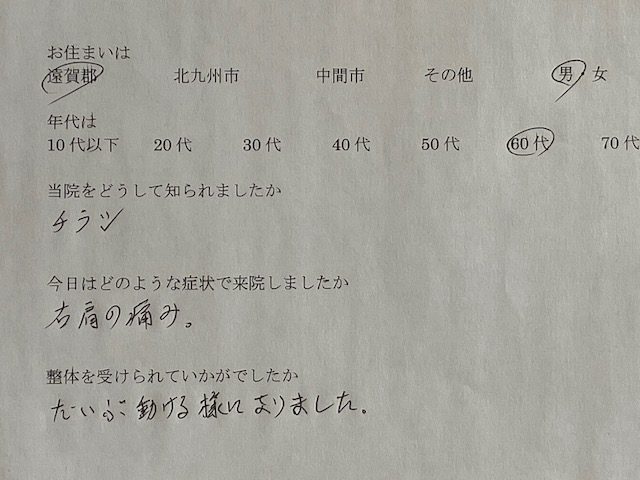 お住まいは
遠賀郡 北九州市 中間市 その他 男・女
年代は
10代以下 20代 30代 40代 50代 60代 70代
当院をどうして知られましたか
チラシ
今日はどのような症状で来院しましたか
右肩の痛み。
整体を受けられていかがでしたか
だいぶ動ける様になりました。